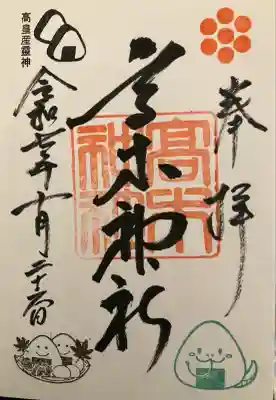 奉拝
高木神社
高木
神社
高皇産靈神
令和七年十月二十六日